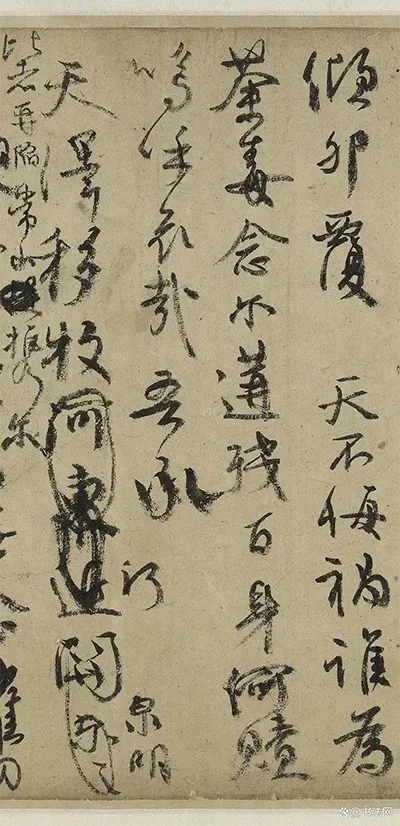 傾卵覆 天不悔禍誰為
荼毒念爾遘殘百身何贖
嗚呼哀哉吾承
天澤移牧河東近關
泉明
比者再陷常山攜爾
@书法网